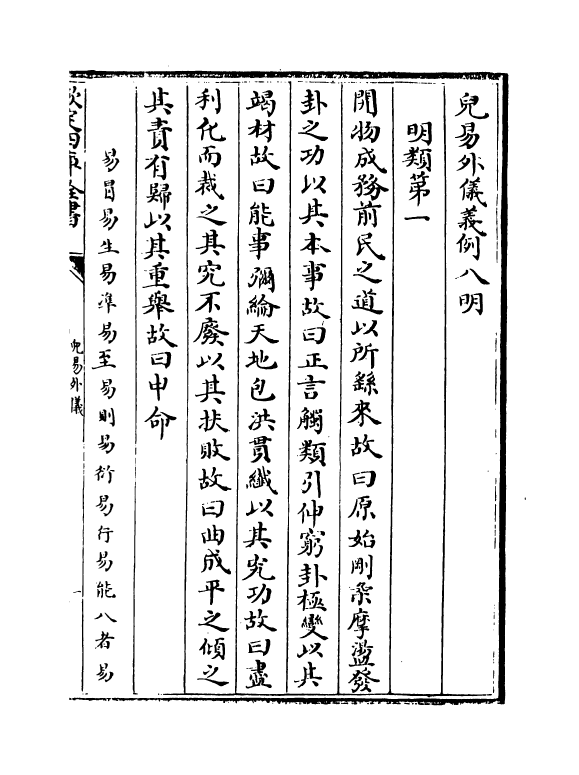 兒易外儀義例八明
明類第一
開物成務前民之道以所繇來故曰原始剛柔摩盪發
卦之功以其本事故曰正言觸類引伸窮卦極變以其
竭材故曰能事彌綸天地包洪貫纖以其究功故曰盡
利化而裁之其究不廢以其扶敗故曰曲成平之傾之
其責有歸以其重舉故曰申命
易冒易生易準易至易則易衍易行易能八者易
欽定四庫全書
兒易外儀
一